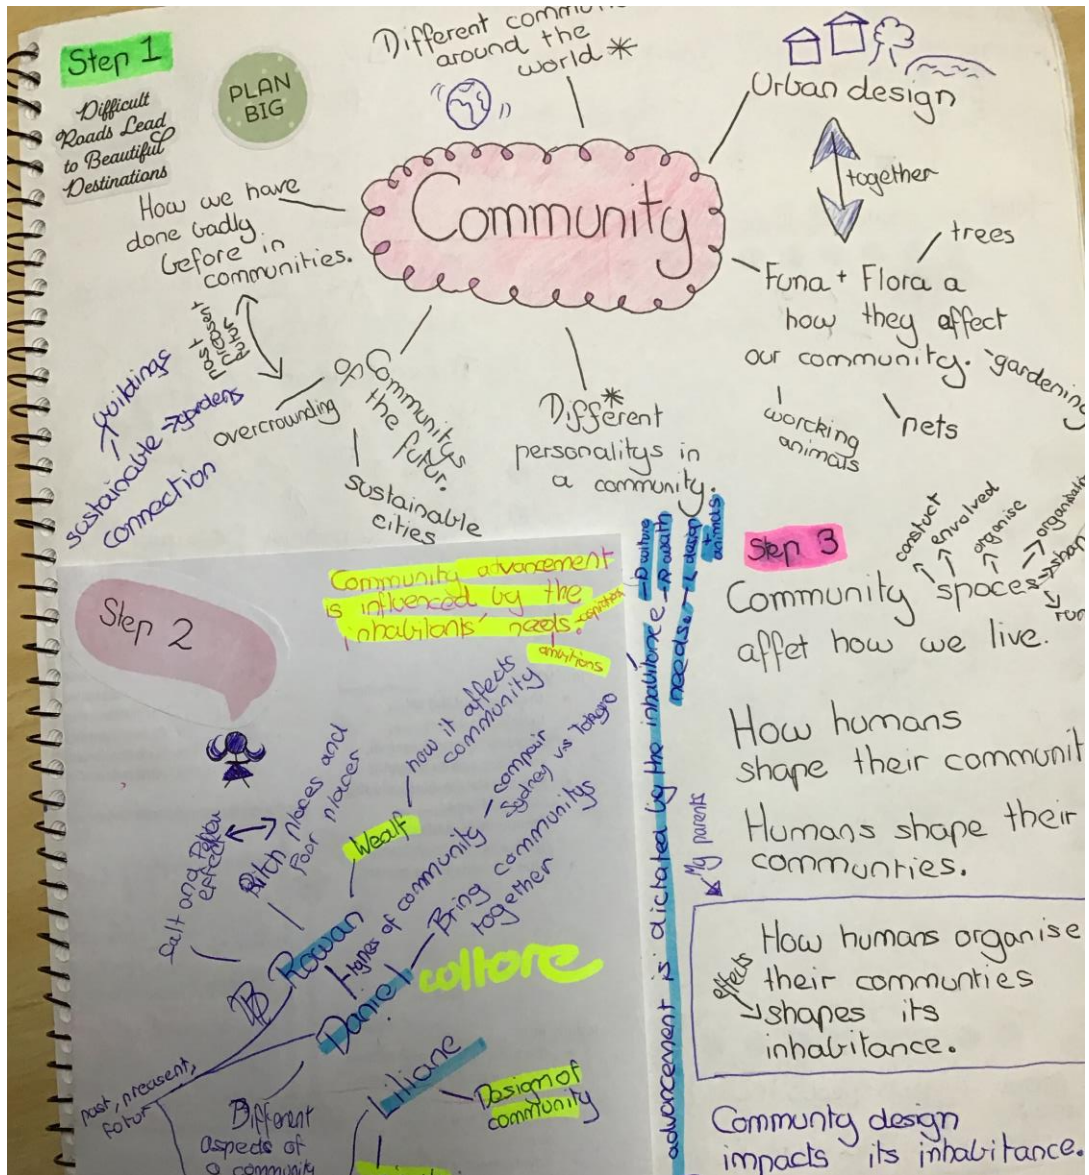 Step 1
Difficult
Roads Lead
to Beautiful
Destinations
PLAN
BIG
Different
around the
world *
Urban design
together
Community
How we have
done badly
before in
communities.
past
preasent
futur
buildings
sustainable → gardens
connection
overcrowding
Communitys
of
the
futur.
sustainable
cities
Different
personalitys in
a community.
Funa + Flora a
how they affect
our community.
trees
gardening
worcking
animals
Step 2
Community advancement
is influenced by the
inhabitants' needs.
ambitions
how it affects
community
Wealf
Ritch places and
Poor places
Salt and
effect
Rowan
types of community
compair
Sydney v.s
Bring communitys
together
Daniel
coltore
Liliane
Design of
community
past, preasent,
futur
Different
aspects of
a community
advancement is dictated by the inhabitance
needs.
design
+
animals
My parents
Step 3
constuct
envolved
organise
Community spaces
affet how we live.
How humans
shape their
Humans shape their
communties.
How humans organise
their communties
effects
shapes its
inhabitance.
Communty design
impacts its inhabitance.